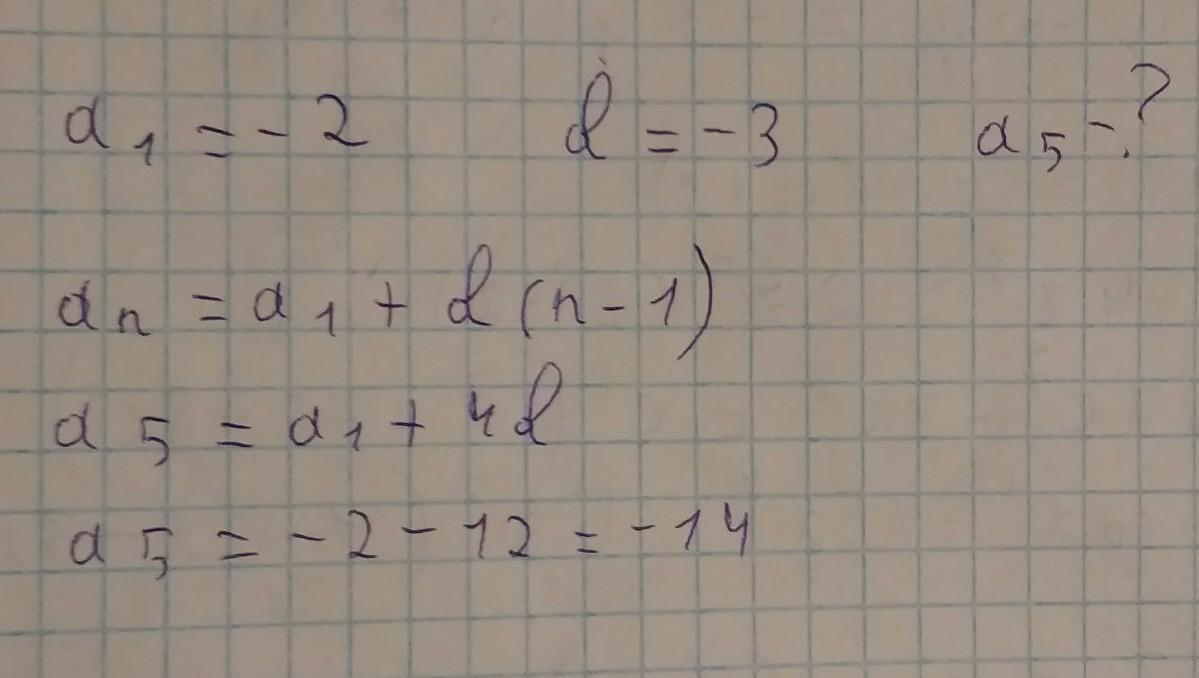 a₁ = -2 d = -3 a₅ -?
aₙ = a₁ + d(n-1)
a₅ = a₁ + 4d
a₅ = -2 - 12 = -14